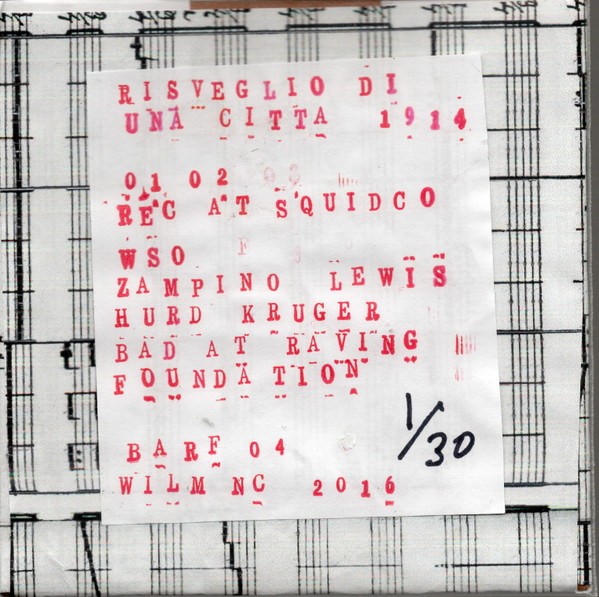 RISVEGLIO DI
UNA CITTA 1914
01 02
REC AT SQUIDCO
WSO
ZAMPINO LEWIS
HURD KRUGER
BAD AT RAVING
FOUNDATION
1/30
BARF 04
WILM NC 2016